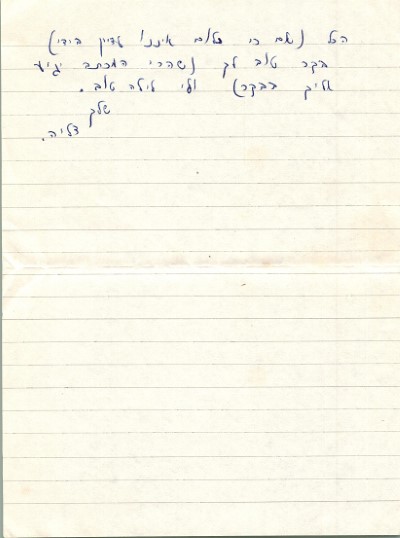 הכל (גם כי כלום איננו עדיין בידי)
בקר טוב לך (שהרי המכתב יגיע
אליך בבקר) ולי לילה טוב.
שלך
דליה.